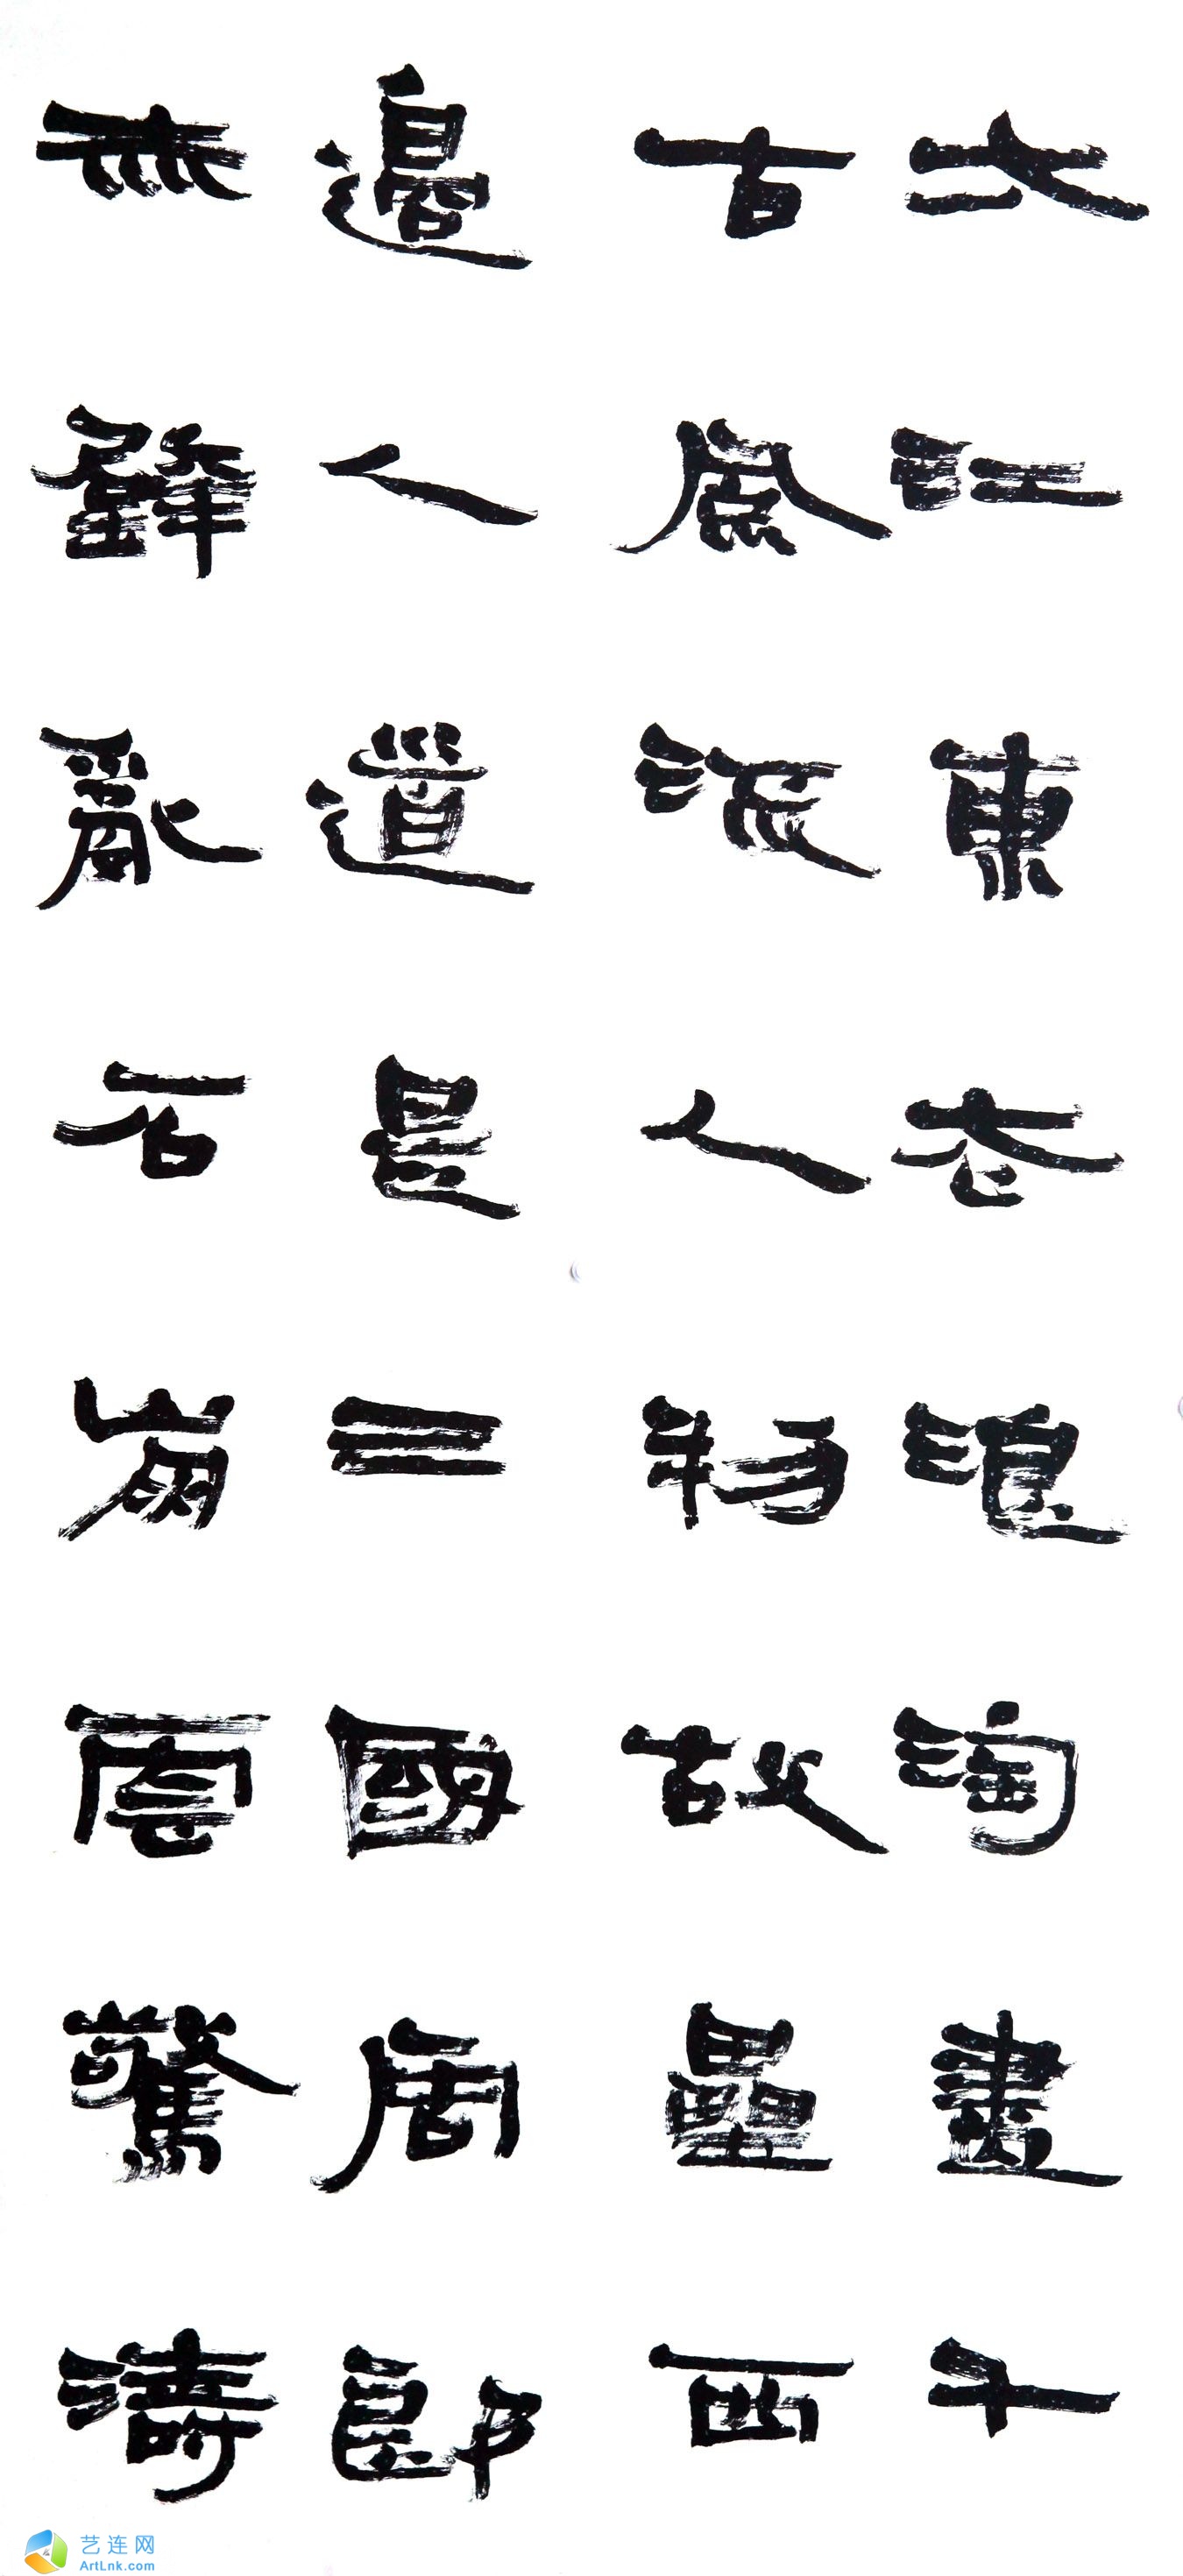 大江東去浪淘盡千
古風流人物故壘西
邊人道是三國周郎
赤壁亂石崩雲驚濤
艺连网
ArtLnk.com